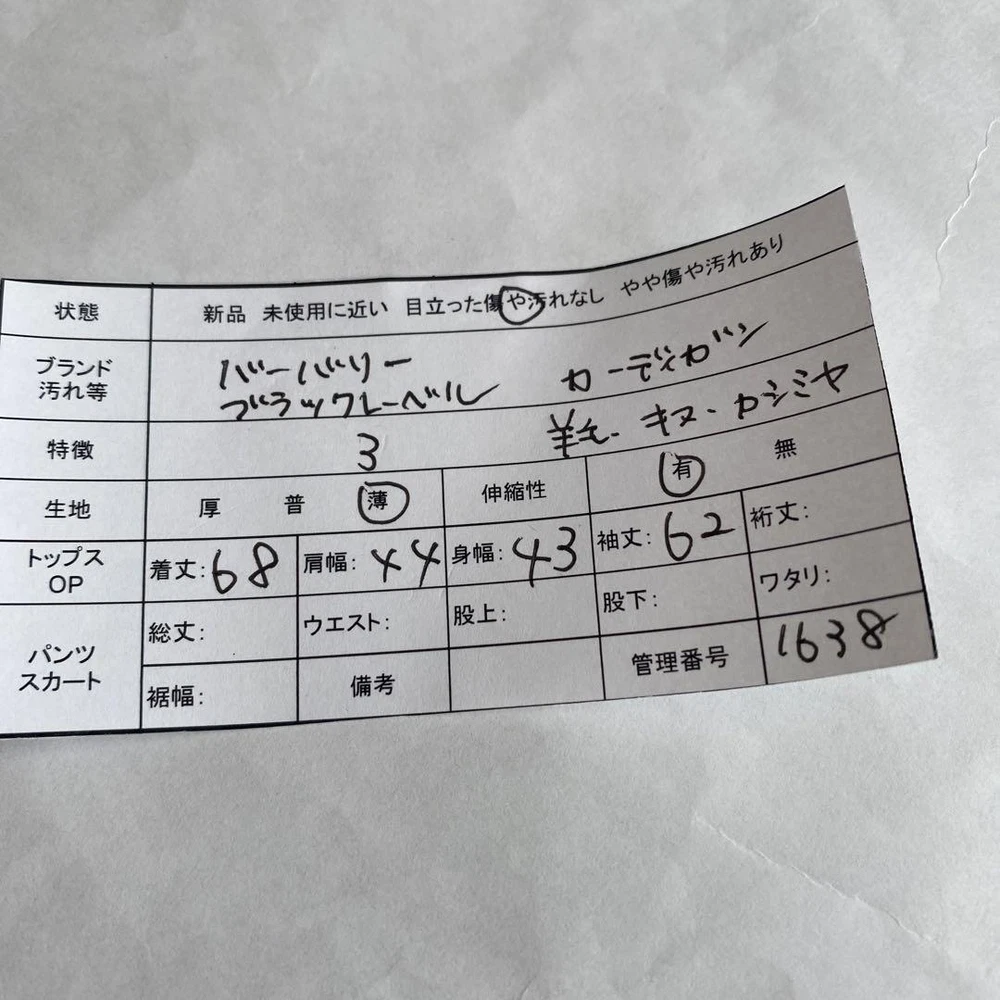 状態 新品 未使用に近い 目立った傷や汚れなし やや傷や汚れあり
ブランド 汚れ等 バーバリー カーディガン
ブラックレーベル
特徴 3 羊毛・キヌ・カシミヤ
生地 厚 普 薄 伸縮性 有 無
トップス OP 着丈:68 肩幅:44 身幅:43 袖丈:62 裄丈:
パンツ スカート 総丈: ウエスト: 股上: 股下: ワタリ:
裾幅: 備考 管理番号 1638